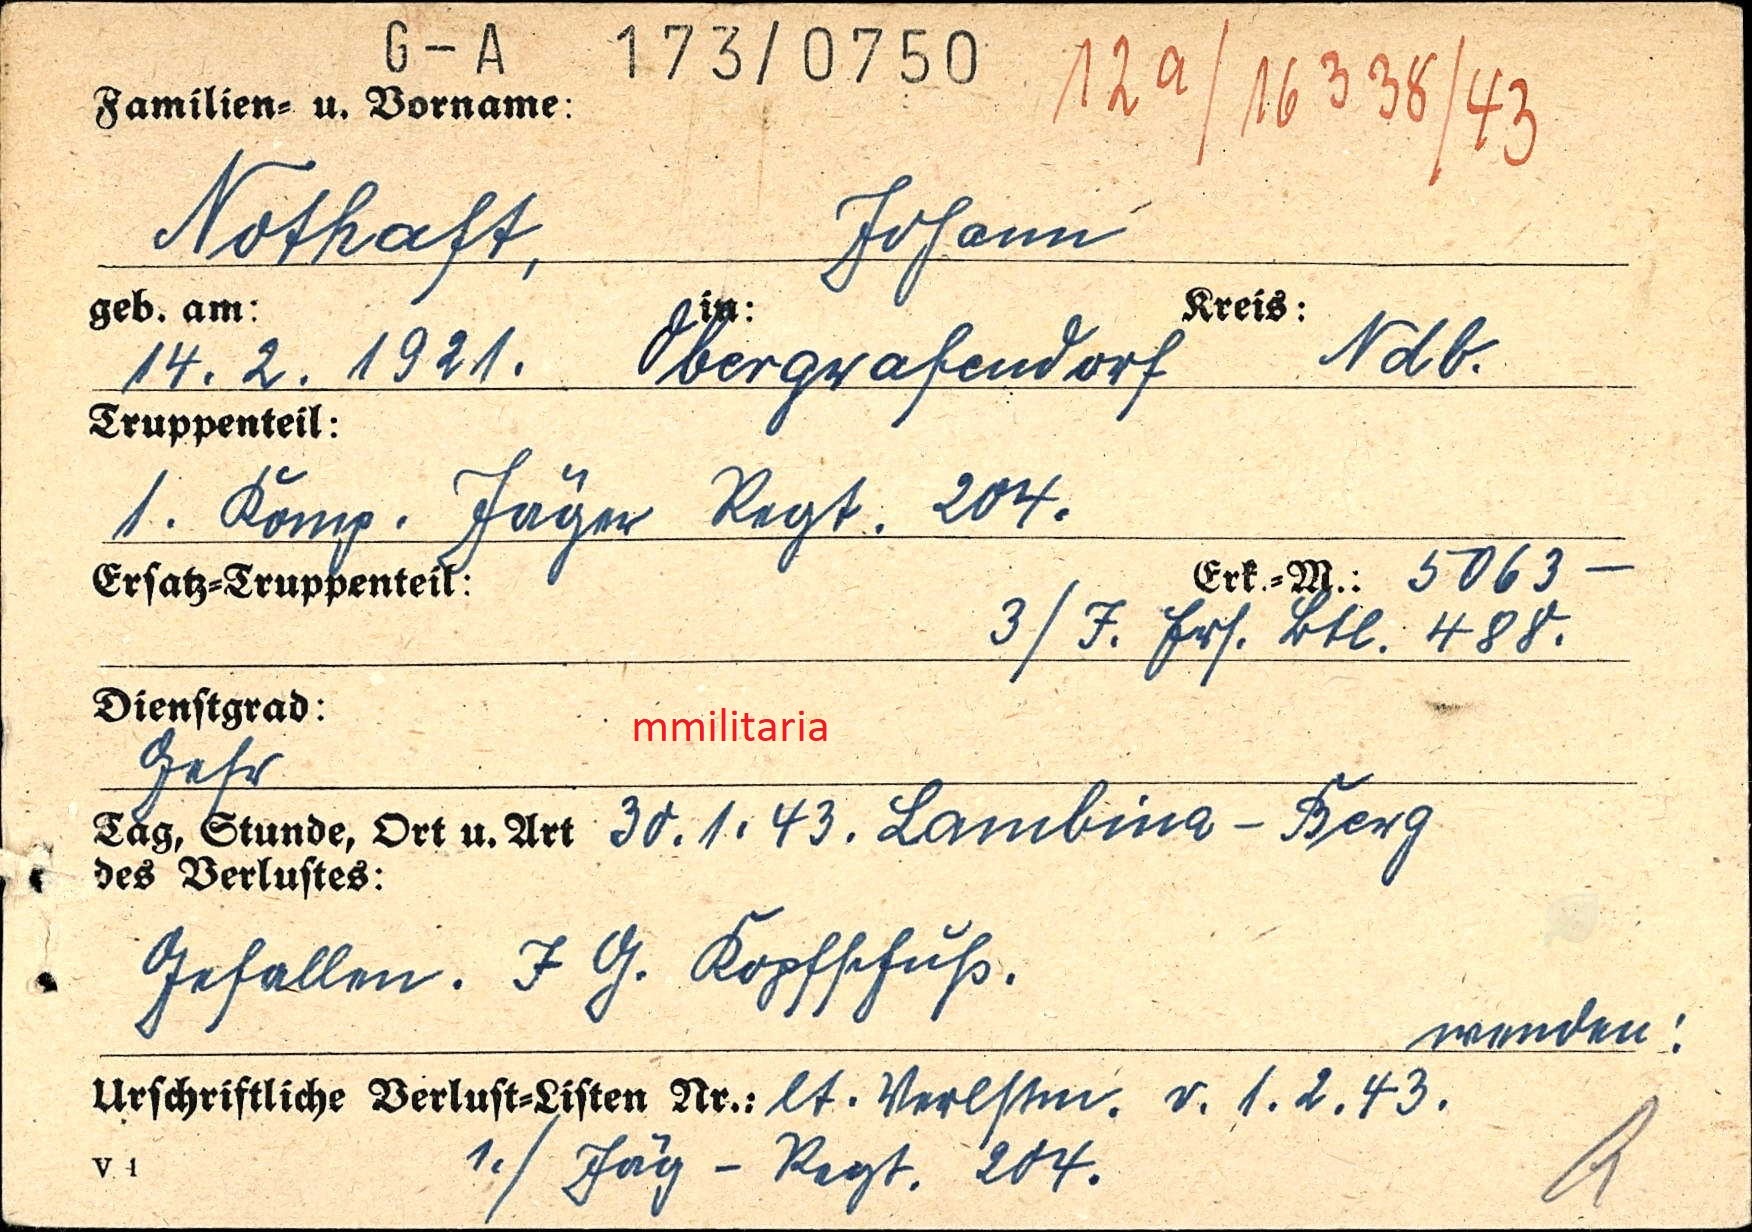 G-A 173/0750 12a/16338/43
Familien- u. Vorname:
Nothaft, Johann
geb. am: in: Kreis:
14. 2. 1921. Obergrafendorf Ndb.
Truppenteil:
1. Komp. Jäger Regt. 204.
Ersatz-Truppenteil: Erk.-M.: 5063 —
3/ J. Ers. Btl. 488.
Dienstgrad:
mmilitaria
Gefr
Tag, Stunde, Ort u. Art 30. 1. 43. Lambina - Berg
des Verlustes:
Gefallen. J G. Kopfschuß.
wenden!
Urschriftliche Verlust-Listen Nr.: lt. v. 1. 2. 43.
V 1 1./ Jäg - Regt. 204.